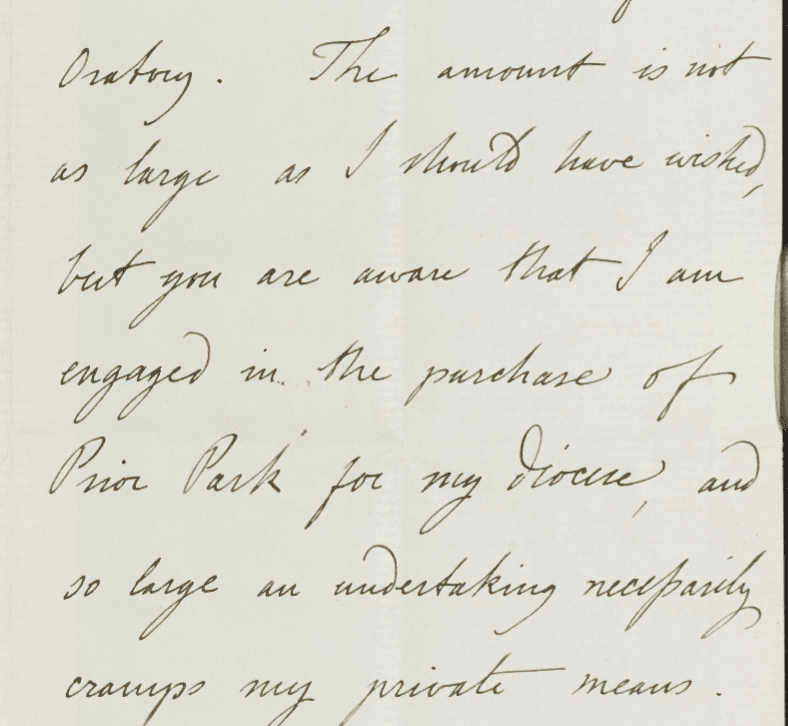 Oratory. The amount is not
as large as I should have wished,
but you are aware that I am
engaged in the purchase of
Prior Park for my diocese, and
so large an undertaking necessarily
cramps my private means.